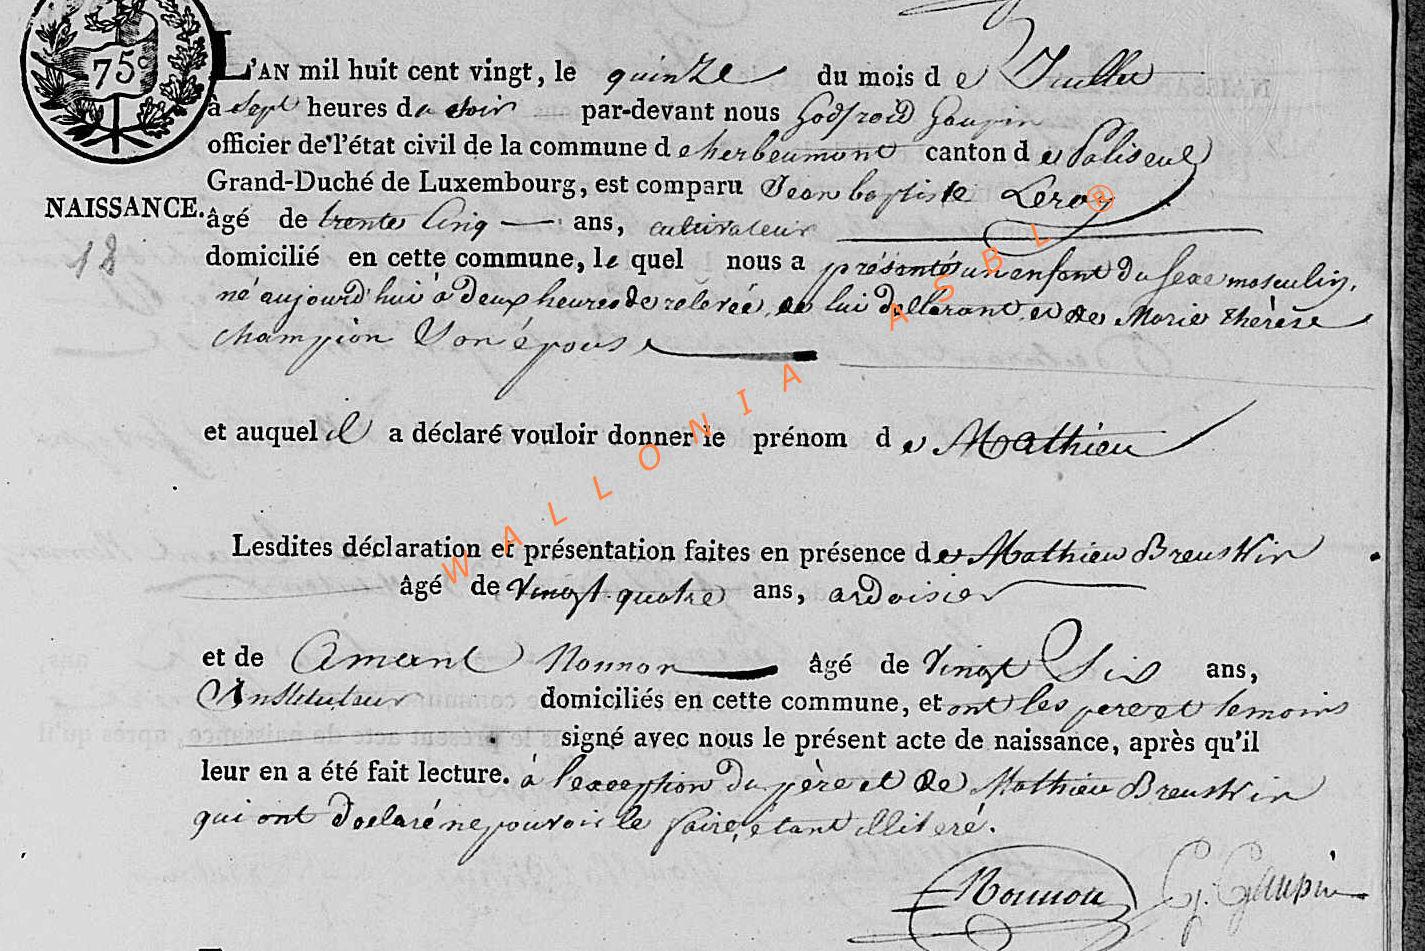 75c
L'AN mil huit cent vingt, le quinze du mois de Juillet
à sept heures du soir par-devant nous Godfroid Gaupin
officier de l'état civil de la commune de herbeumont canton de Paliseul
Grand-Duché de Luxembourg, est comparu Jean baptiste Leroy
NAISSANCE.
âgé de trente cinq ans, cultivateur
18
domicilié en cette commune, le quel nous a présenté un enfant du sexe masculin,
né aujourd'hui à deux heures de relevée, de lui déclarant et de Marie thérèse
champion son épouse
et auquel il a déclaré vouloir donner le prénom de Mathieu
Lesdites déclaration et présentation faites en présence de Mathieu Breuskin
âgé de vingt-quatre ans, ardoisier
et de Amant Nonnon âgé de vingt six ans,
Instituteur domiciliés en cette commune, et ont les pere et temoins
signé avec nous le présent acte de naissance, après qu'il
leur en a été fait lecture. à l'exception du père et de Mathieu Breuskin
qui ont déclaré ne pouvoir le faire, étant illiteré.
Nonnon G. Gaupin
WALLONIA ASBL ®